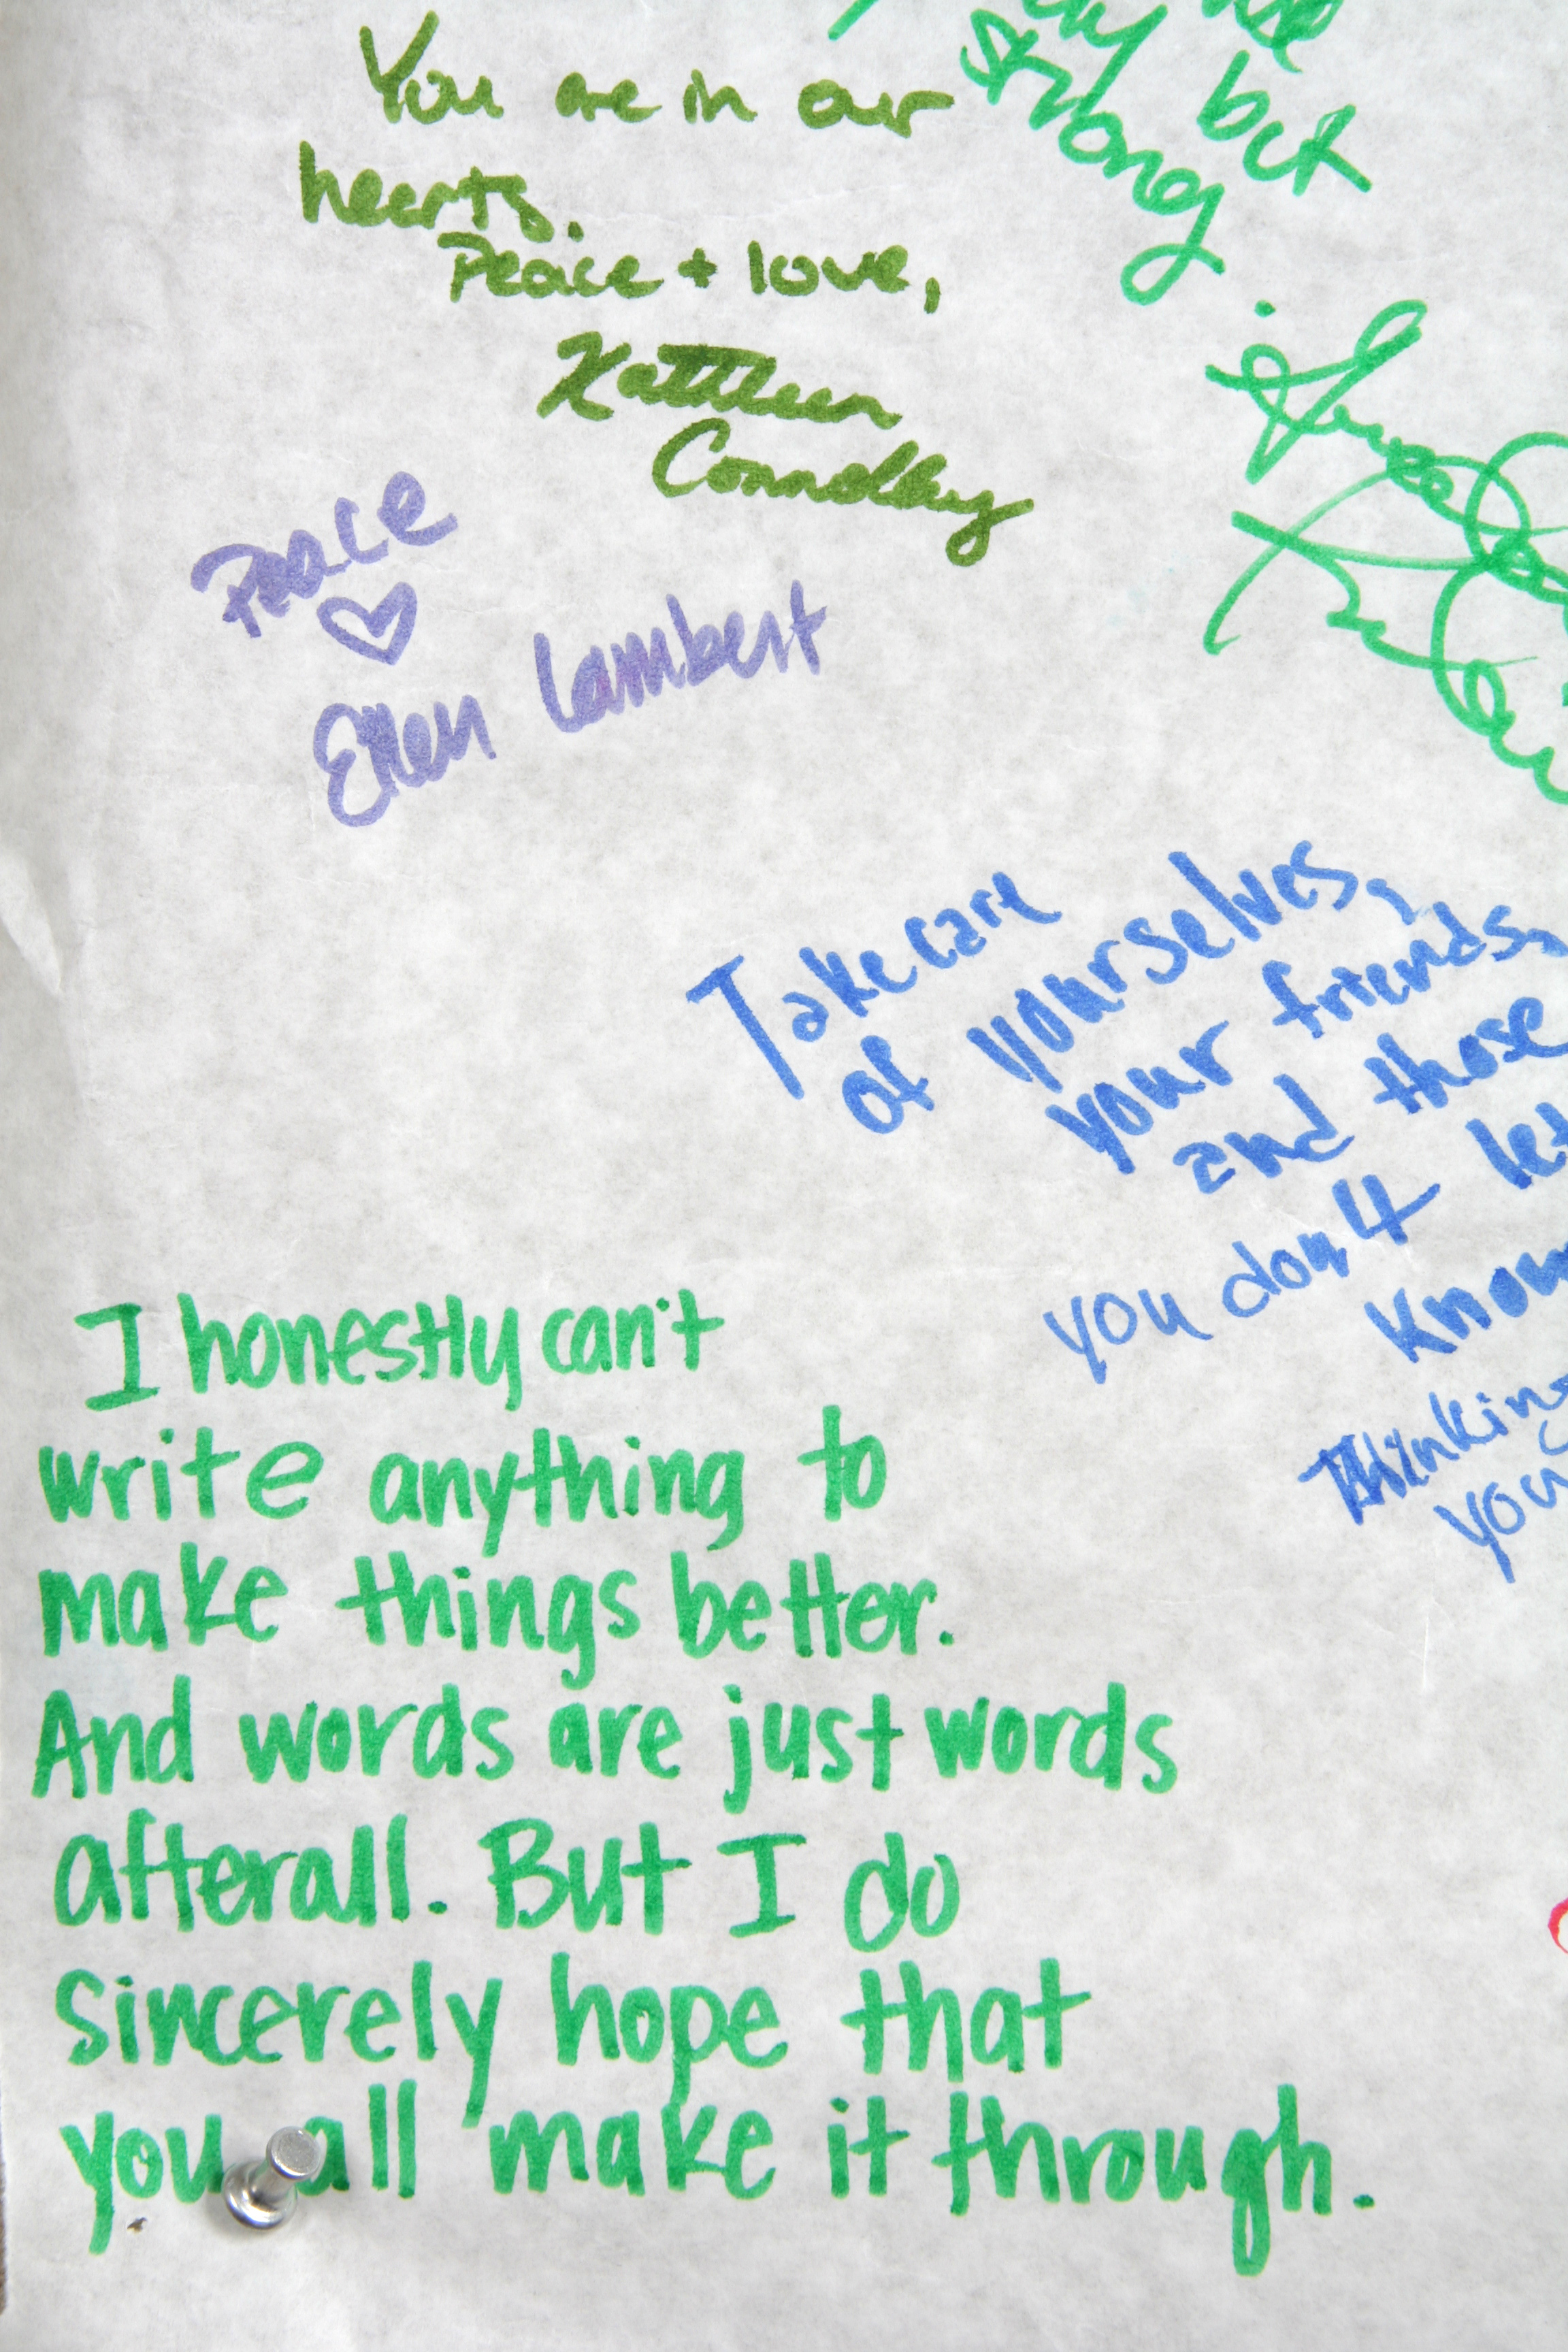 strong but
You are in our
hearts.
Peace + love,
Kathleen
Connolley
Peace
Ellen Lambert
Take care
of yourselves,
your friends,
and those
you don't let
know
Thinking
you
I honestly can't
write anything to
make things better.
And words are just words
afterall. But I do
sincerely hope that
you all make it through.